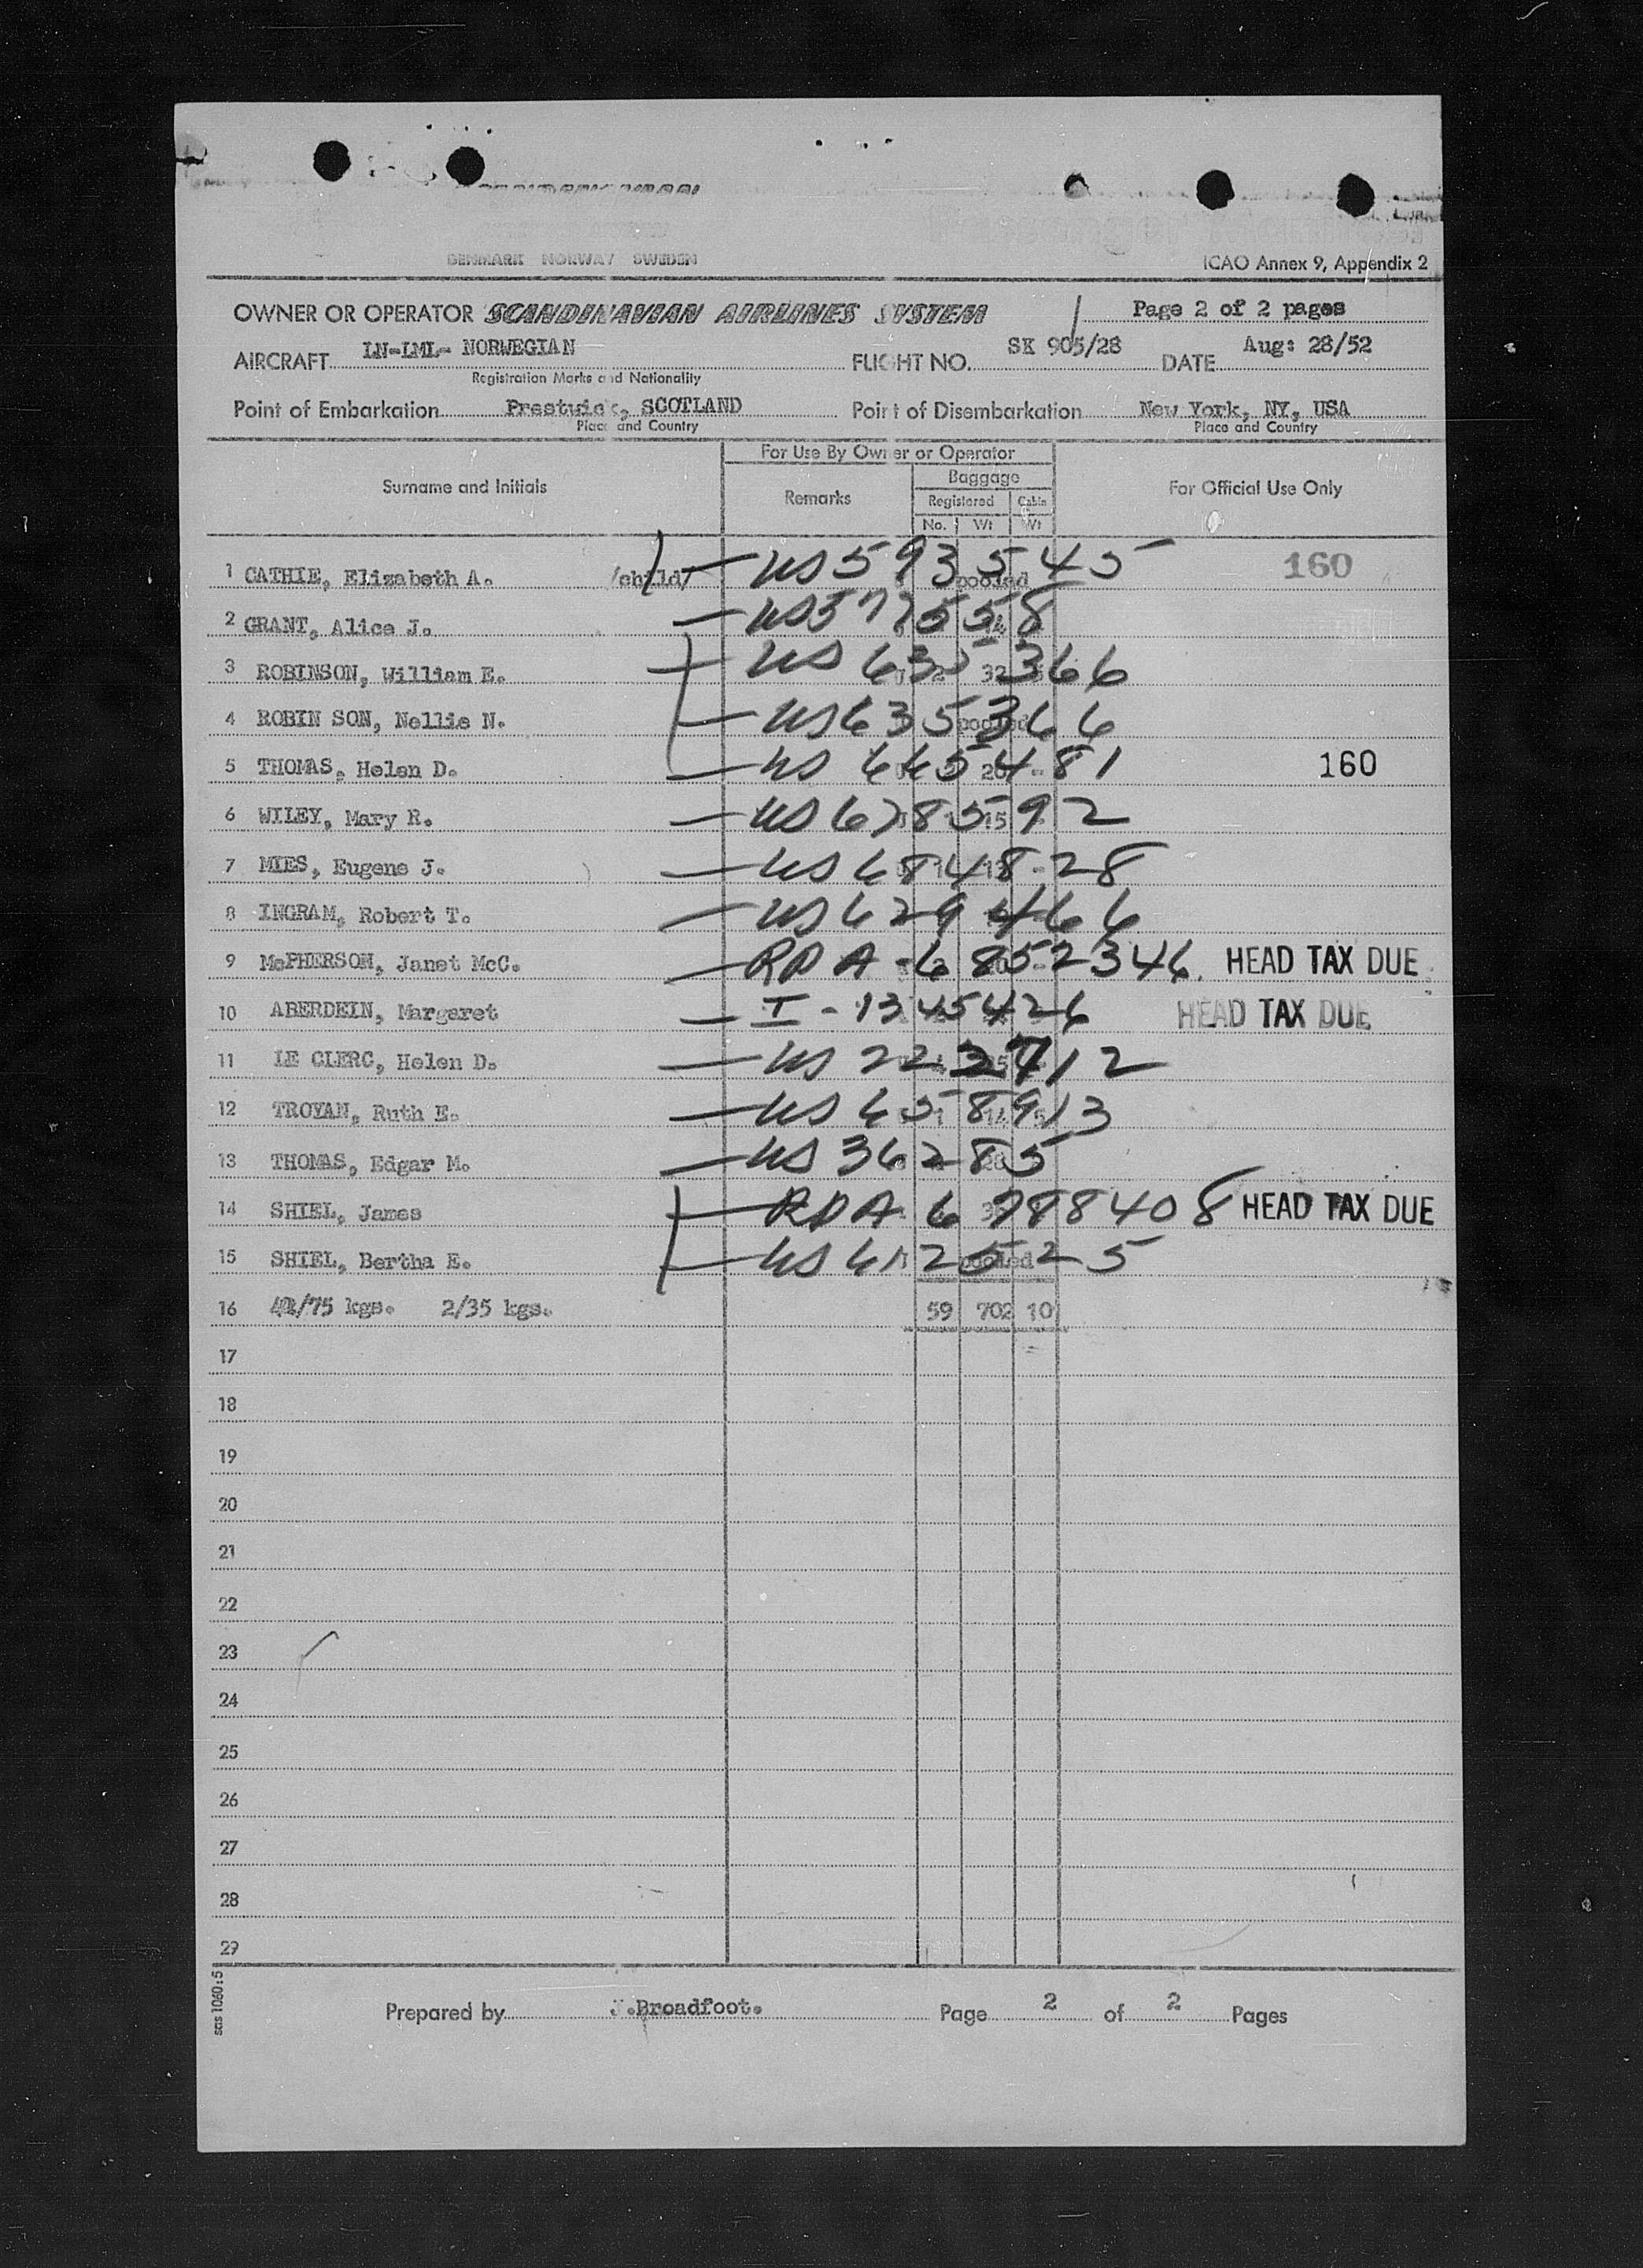 DENMARK NORWAY SWEDEN
ICAO Annex 9, Appendix 2
OWNER OR OPERATOR SCANDINAVIAN AIRLINES SYSTEM Page 2 of 2 pages
AIRCRAFT LN-LML- NORWEGIAN FLIGHT NO. SK 905/28 DATE Aug: 28/52
Registration Marks and Nationality
Point of Embarkation Prestwick, SCOTLAND Point of Disembarkation New York, NY, USA
Place and Country Place and Country
For Use By Owner or Operator
Surname and Initials Remarks Baggage For Official Use Only
Registered Cabin
No. Wt Wt
1 CATHIE, Elizabeth A. /child/ US 593 5 45 pooled 160
2 GRANT, Alice J. US 577558
3 ROBINSON, William E. US 635366 32
4 ROBIN SON, Nellie N. US 635366 pooled
5 THOMAS, Helen D. US 665481 160
6 WILEY, Mary R. US 678592 15
7 MIES, Eugene J. US 684828
8 INGRAM, Robert T. US 629466
9 McPHERSON, Janet McC. RPA-6852346 HEAD TAX DUE
10 ABERDEIN, Margaret I-1345426 HEAD TAX DUE
11 LE CLERC, Helen D. US 223712
12 TROYAN, Ruth E. US 658913
13 THOMAS, Edgar M. US 36285
14 SHIEL, James RPA 6788408 HEAD TAX DUE
15 SHIEL, Bertha E. US 612525 pooled
16 /75 kgs. 2/35 kgs. 59 702 10
17
18
19
20
21
22
23
24
25
26
27
28
29
sas 1060:5
Prepared by J.Broadfoot. Page 2 of 2 Pages